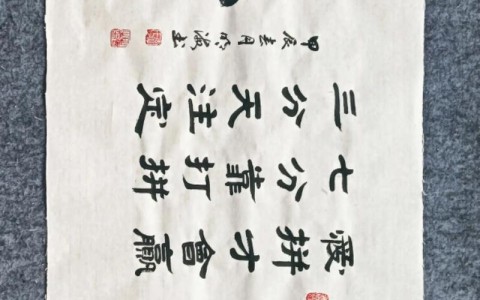 愛拼才會贏
七分靠打拼
三分天注定
甲辰 月